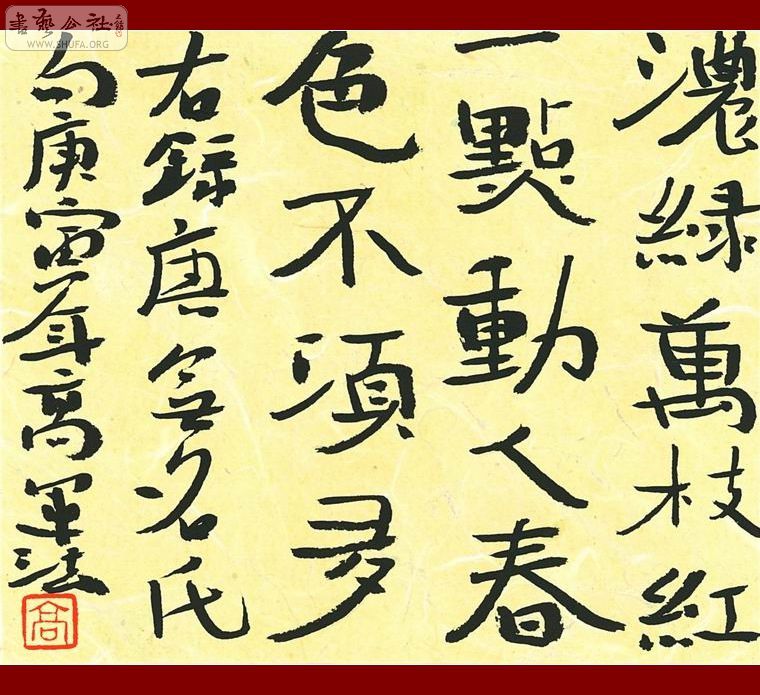 書藝公社
WWW.SHUFA.ORG
濃緑萬枝紅
一點動人春
色不須多
右録唐無名氏
句庚寅年高軍法
高